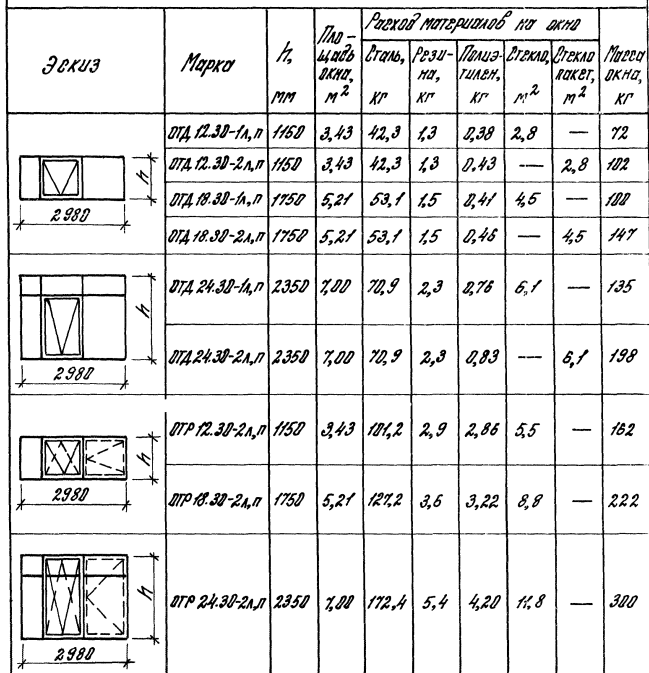 Эскиз | Марка | h, мм | Площадь окна, м² | Расход материалов на окно | Масса окна, кг
Сталь, кг | Резина, кг | Полиэтилен, кг | Стекло, м² | Стеклопакет, м²
ОТД 12.30-1л,п 1150 3,43 42,3 1,3 0,38 2,8 — 72
ОТД 12.30-2л,п 1150 3,43 42,3 1,3 0,43 — 2,8 102
ОТД 18.30-1л,п 1750 5,21 53,1 1,5 0,41 4,5 — 100
ОТД 18.30-2л,п 1750 5,21 53,1 1,5 0,46 — 4,5 147
h
2980
ОТД 24.30-1л,п 2350 7,00 70,9 2,3 0,76 6,1 — 135
ОТД 24.30-2л,п 2350 7,00 70,9 2,3 0,83 — 6,1 198
h
2980
ОТР 12.30-2л,п 1150 3,43 101,2 2,9 2,86 5,5 — 162
ОТР 18.30-2л,п 1750 5,21 127,2 3,6 3,22 8,8 — 222
h
2980
ОТР 24.30-2л,п 2350 7,00 172,4 5,4 4,20 11,8 — 300
h
2980